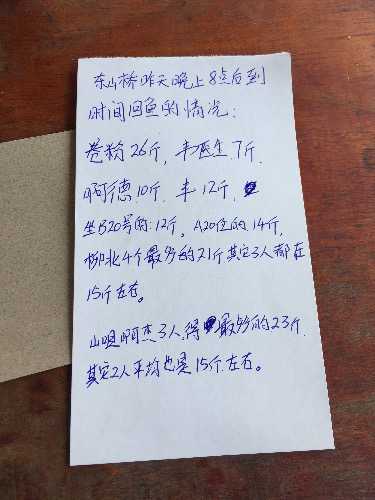 东山桥昨天晚上8点后到
时间回鱼的情况：
卷粉26斤，丰医生7斤.
啊德10斤 丰12斤.
坐B20号的：12斤，A20位的14斤，
柳北4个最多的21斤其它3人都在
15斤左右。
山咀啊杰3人得最多的23斤.
其它2人平均也是15斤左右。